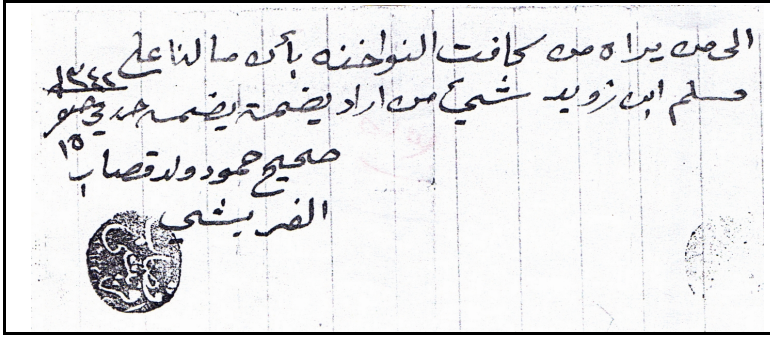 الى من يراه من كافت النواخنه بأن ما لنا على
مسلم ابن زويد شيئ من اراد يضمنه يضمنه حد في صفر
١٣٤٢
١٥
صحيح حمود ولد قصاب
الفريشي